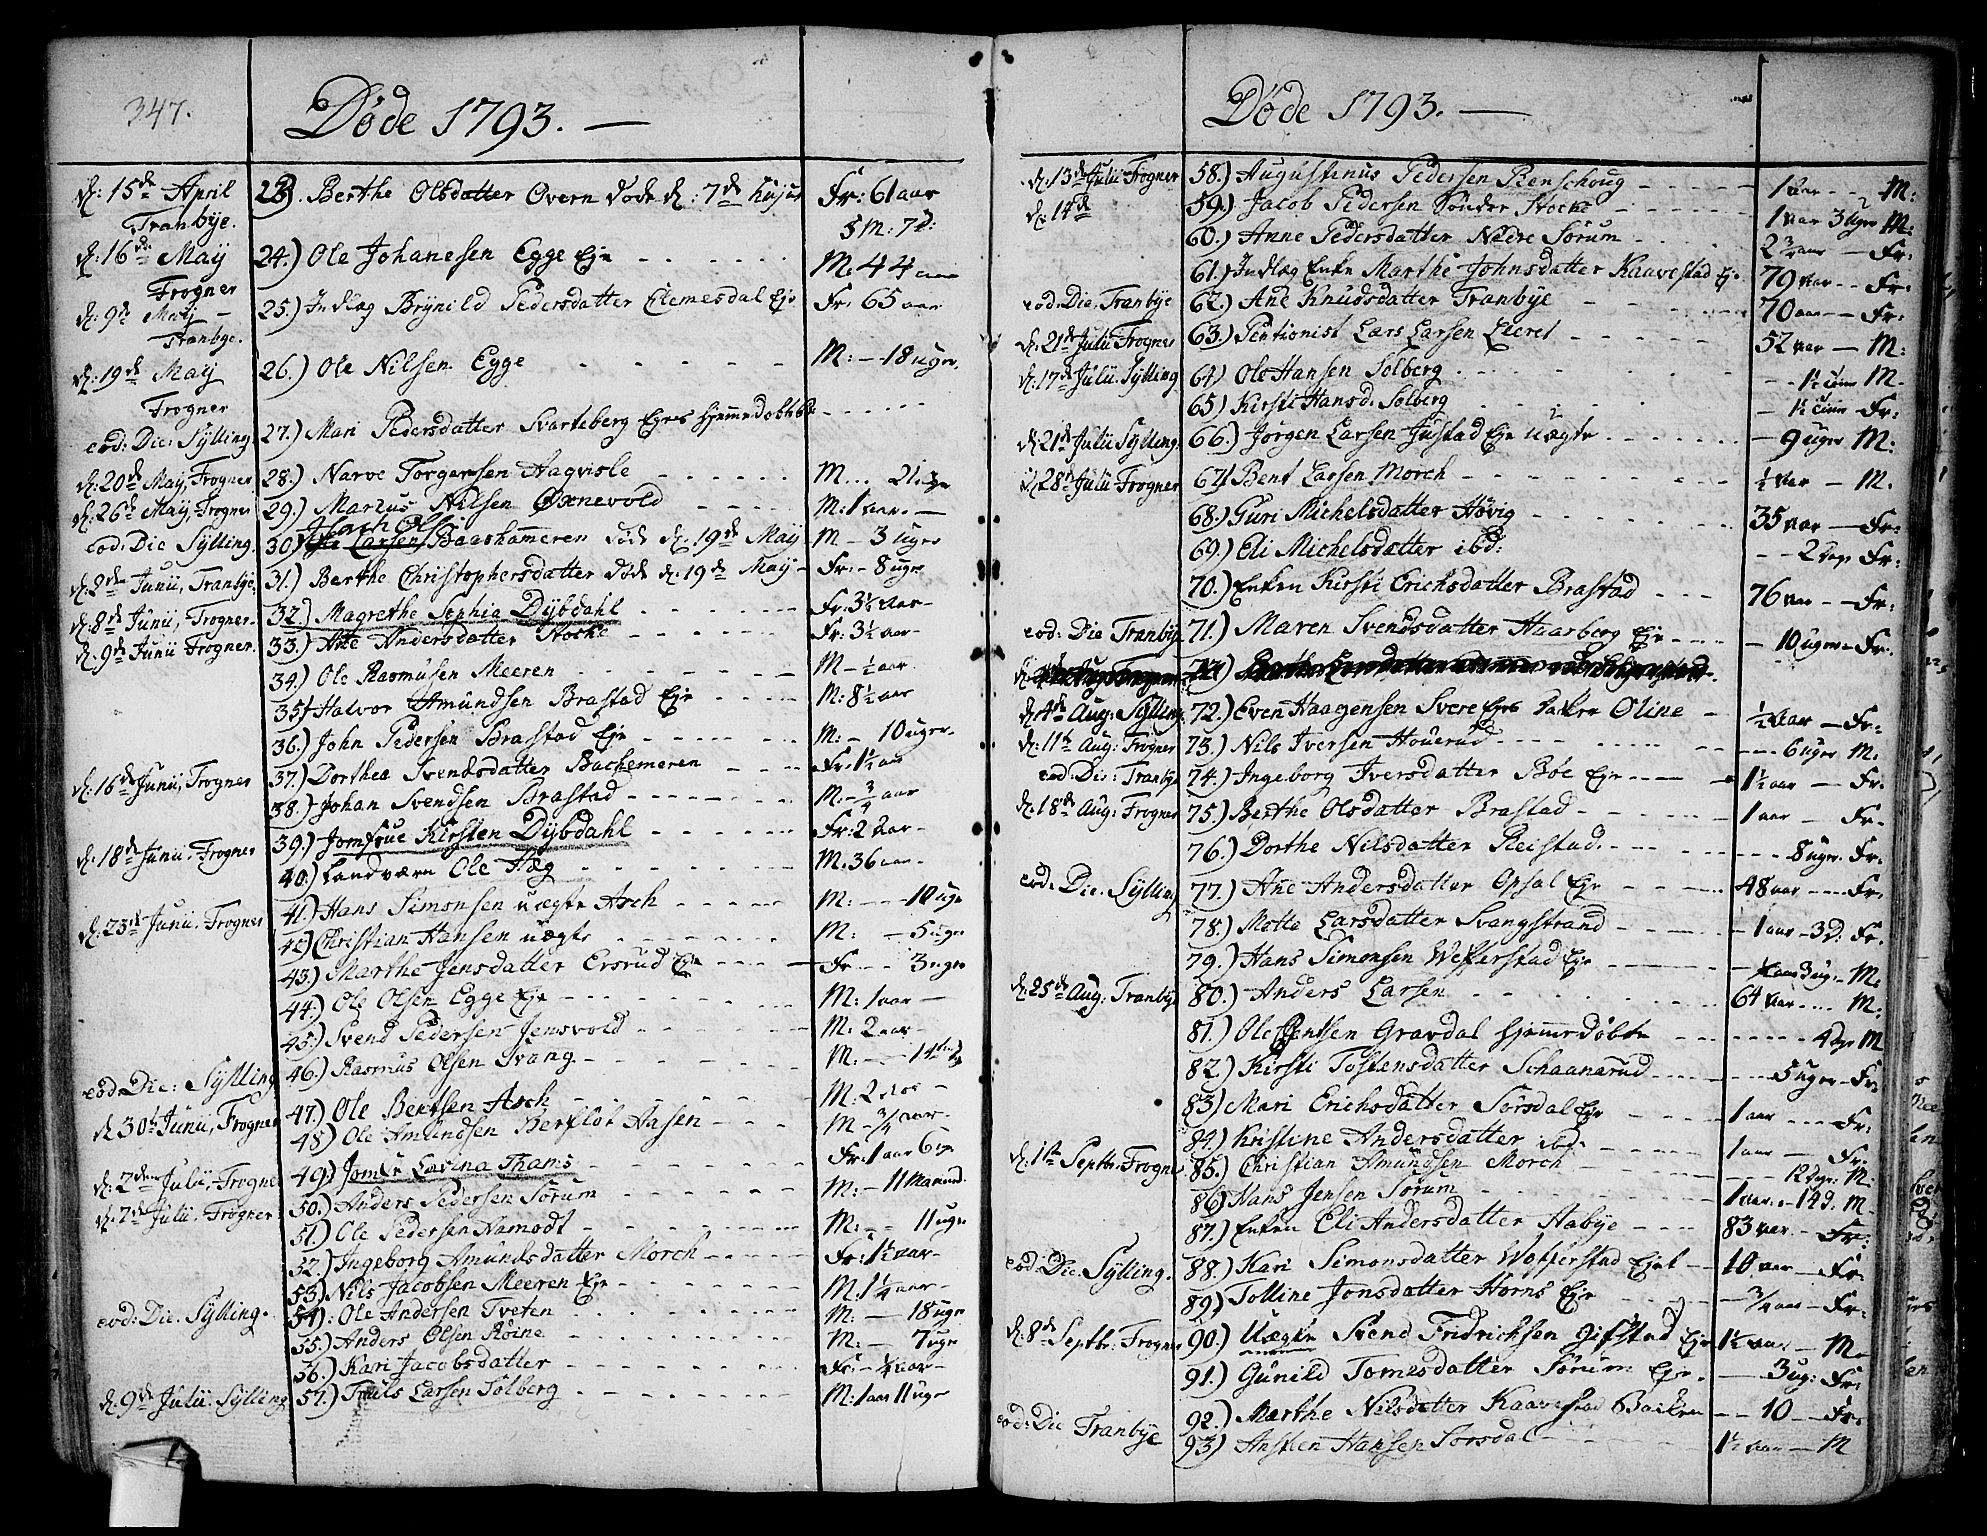 347.
Døde 1793. —
d: 15de April 23). Berthe Olsdatter Overn døde d: 7de hujus Fr: 61 aar
Tranbye. 3 M: 7 d:
d: 16de May 24.) Ole Johanesen Egge Eje M: 44 aar
Frogner
d: 9de May — 25.) Indlag Brynild Pedersdatter Clemesdal Eje Fr: 65 aar
Tranbye.
d: 19de May 26.) Ole Nilsen Egge M: — 18 uger.
Frogner
eod: Die: Sylling. 27.) Mari Pedersdatter Svarteberg Ejes Hjemmedøbt
d: 20de May, Frogner 28.) Narve Torgersen Aagvisle M...
d: 26de May, Frogner 29.) Marius Nilsen Oxnevold M: 1 aar. —
eod: Die Sylling. 30) Baashammeren døde d. 19de May M — 3 uger
d: 2den Junii, Tranbye. 31.) Berthe Christophersdatter døde d. 19de May — Fr: — 8 uger
d: 8de Junii, Frogner. 32.) Magrethe Sophia Dybdahl Fr: 3½ aar —
d: 9de Junii Frogner. 33.) Ane Andersdatter Stocke Fr: 3½ aar —
34.) Ole Rasmusen Meeren M — ½ aar.
35) Halvor Amundsen Brastad Eje M: 8½ aar
36.) John Pedersen Brastad Eje M: — 10 uger.
d: 16de Junii, Frogner 37.) Dorthea Svendsdatter Bachemeren Fr: 1½ aar
38.) Johan Svendsen Brastad M: — ¾ aar
39.) Jomfrue Kirsten Dybdahl Fr: 2 aar —
d: 18de Junii. Frogner 40.) Landværn Ole Hæg M: 36 aar.
41.) Hans Simonsen uægte Asch M: — 10 uger
d: 23de Junii. Frogner 42) Christian Hansen uægte M: — 5 uger
43.) Marthe Jensdatter Ersrud Eje Fr — 3 uger
44.) Ole Olsen Egge Eje M: 1 aar —
45.) Svend Pedersen Jensvold M: 2 aar —
46.) Rasmus Olsen Svang M: — 14
eod: Die: Sylling
47.) Ole Bentsen Asch M: 2
d 30te Junii, Frogner 48.) Ole Amundsen Berflot Aasen M — ¾ aar —
49.) Jomfr Lavina Thams Fr: 1 aar 6
d: 2den Julii, Frogner 50.) Anders Pedersen Sørum M: — 11 Maaned.
d: 7de Julii. Frogner 51.) Ole Pedersen Namodt M: — 11 uger
52.) Ingeborg Amundsdatter Morch Fr: 1½ aar —
53.) Nils Jacobsen Meeren Eje M: 1¼ aar —
eod: Die. Sylling. 54). Ole Andersen Tveten M: — 18 uger
55.) Anders Olsen Roine M: — 7 uger
56.) Kari Jacobsdatter Fr: — ¼ aar —
d: 9de Julii. Sylling 57.) Truls Larsen Solberg M: 1 aar 11 uger
Døde 1793. —
d: 13de Julii Frogner 58.) Augustinus Pedersen Renschoug 1 aar — M:
d: 14de 59.) Jacob Pedersen Sønder Stocke 1 aar 3 uger M:
60.) Anne Pedersdatter Neere Sørum 2¾ aar — Fr:
61.) Indlag Enke Marthe Johnsdatter Kaavestad Eje 79 aar — Fr:
eod: Die. Tranbye 62.) Ane Knudsdatter Tranbye 70 aar — Fr:
d: 21de Julii Frogner 63.) Pentionist Lars Larsen Lieret 52 aar — M:
d: 17de Julii. Sylling 64) Ole Hansen Solberg M.
65) Kirsti Hansd: Solberg Fr:
d: 21de Julii Sylling. 66.) Jørgen Larsen Justad Eje uægte — 9 uger M:
d: 28de Julii Frogner 67) Bent Larsen Morch ½ aar — M.
68.) Guri Michelsdatter Høvig 35 aar — Fr:
69.) Eli Michelsdatter ibd: 2 dage Fr:
70.) Enken Kirsti Erichsdatter Brastad 76 aar — Fr:
eod: Die Tranby. 71.) Maren Svendsdatter Haarberg Eje 10 uger — Fr:
d: 4de Aug: Sylling. 72.) Even Haagensen Svere Ejes Datter Oline — ½ aar — Fr:
d: 11te Aug: Frogner 73.) Nils Iversen Houerud 6 uger M.
eod: Die: Tranby: 74.) Ingeborg Iversdatter Bøe Eje 1½ aar — Fr:
d: 18de Aug: Frogner 75.) Berthe Olsdatter Brastad 1 aar — Fr:
76.) Dorthe Nilsdatter Reistad. 8 uger. Fr:
eod: Die. Sylling 77.) Ane Andersdatter Opsal Eje 48 aar — Fr:
78.) Motte Larsdatter Svangstrand 1 aar — 3 D: Fr.
79.) Hans Simonsen Wefferstad Eje 1 aar 3 ug — M.
d: 25de Aug: Tranby 80.) Anders Larsen 64 aar — M.
81.) Ole Bentsen Gravdal Hjemmedøbt M
82.) Kirsti Tostensdatter Schaanarud 5 uger — Fr:
83) Mari Erichsdatter Sørsdal Eje 1 aar — Fr:
84.) Kristine Andersdatter ibd: 1 aar — Fr.
d: 1te Septbr. Frogner 85.) Christian Amundsen Morch 12 dage. M.
86) Hans Jensen Sørum 1 aar. — 14 d. M.
87.) Enken Eli Andersdatter Aabye 83 aar — Fr:
eod: Die. Sylling. 88.) Kari Simonsdatter Wefferstad Ejet 10 aar — Fr:
89.) Tolline Jonsdatter Horns Eje ¾ aar — Fr:
d: 8de Septbr. Frogner 90.) Uægte Svend Fridrichsen Gifstad Eje 1½ aar — M.
91.) Gunild Tomesdatter Sørum Eje. 3 ug: Fr:
eod: Die Tranbye 92.) Marthe Nilsdatter Kaavestad Backen — 10 — Fr:
93) Ansten Hansen Sørsdal 1½ aar — M